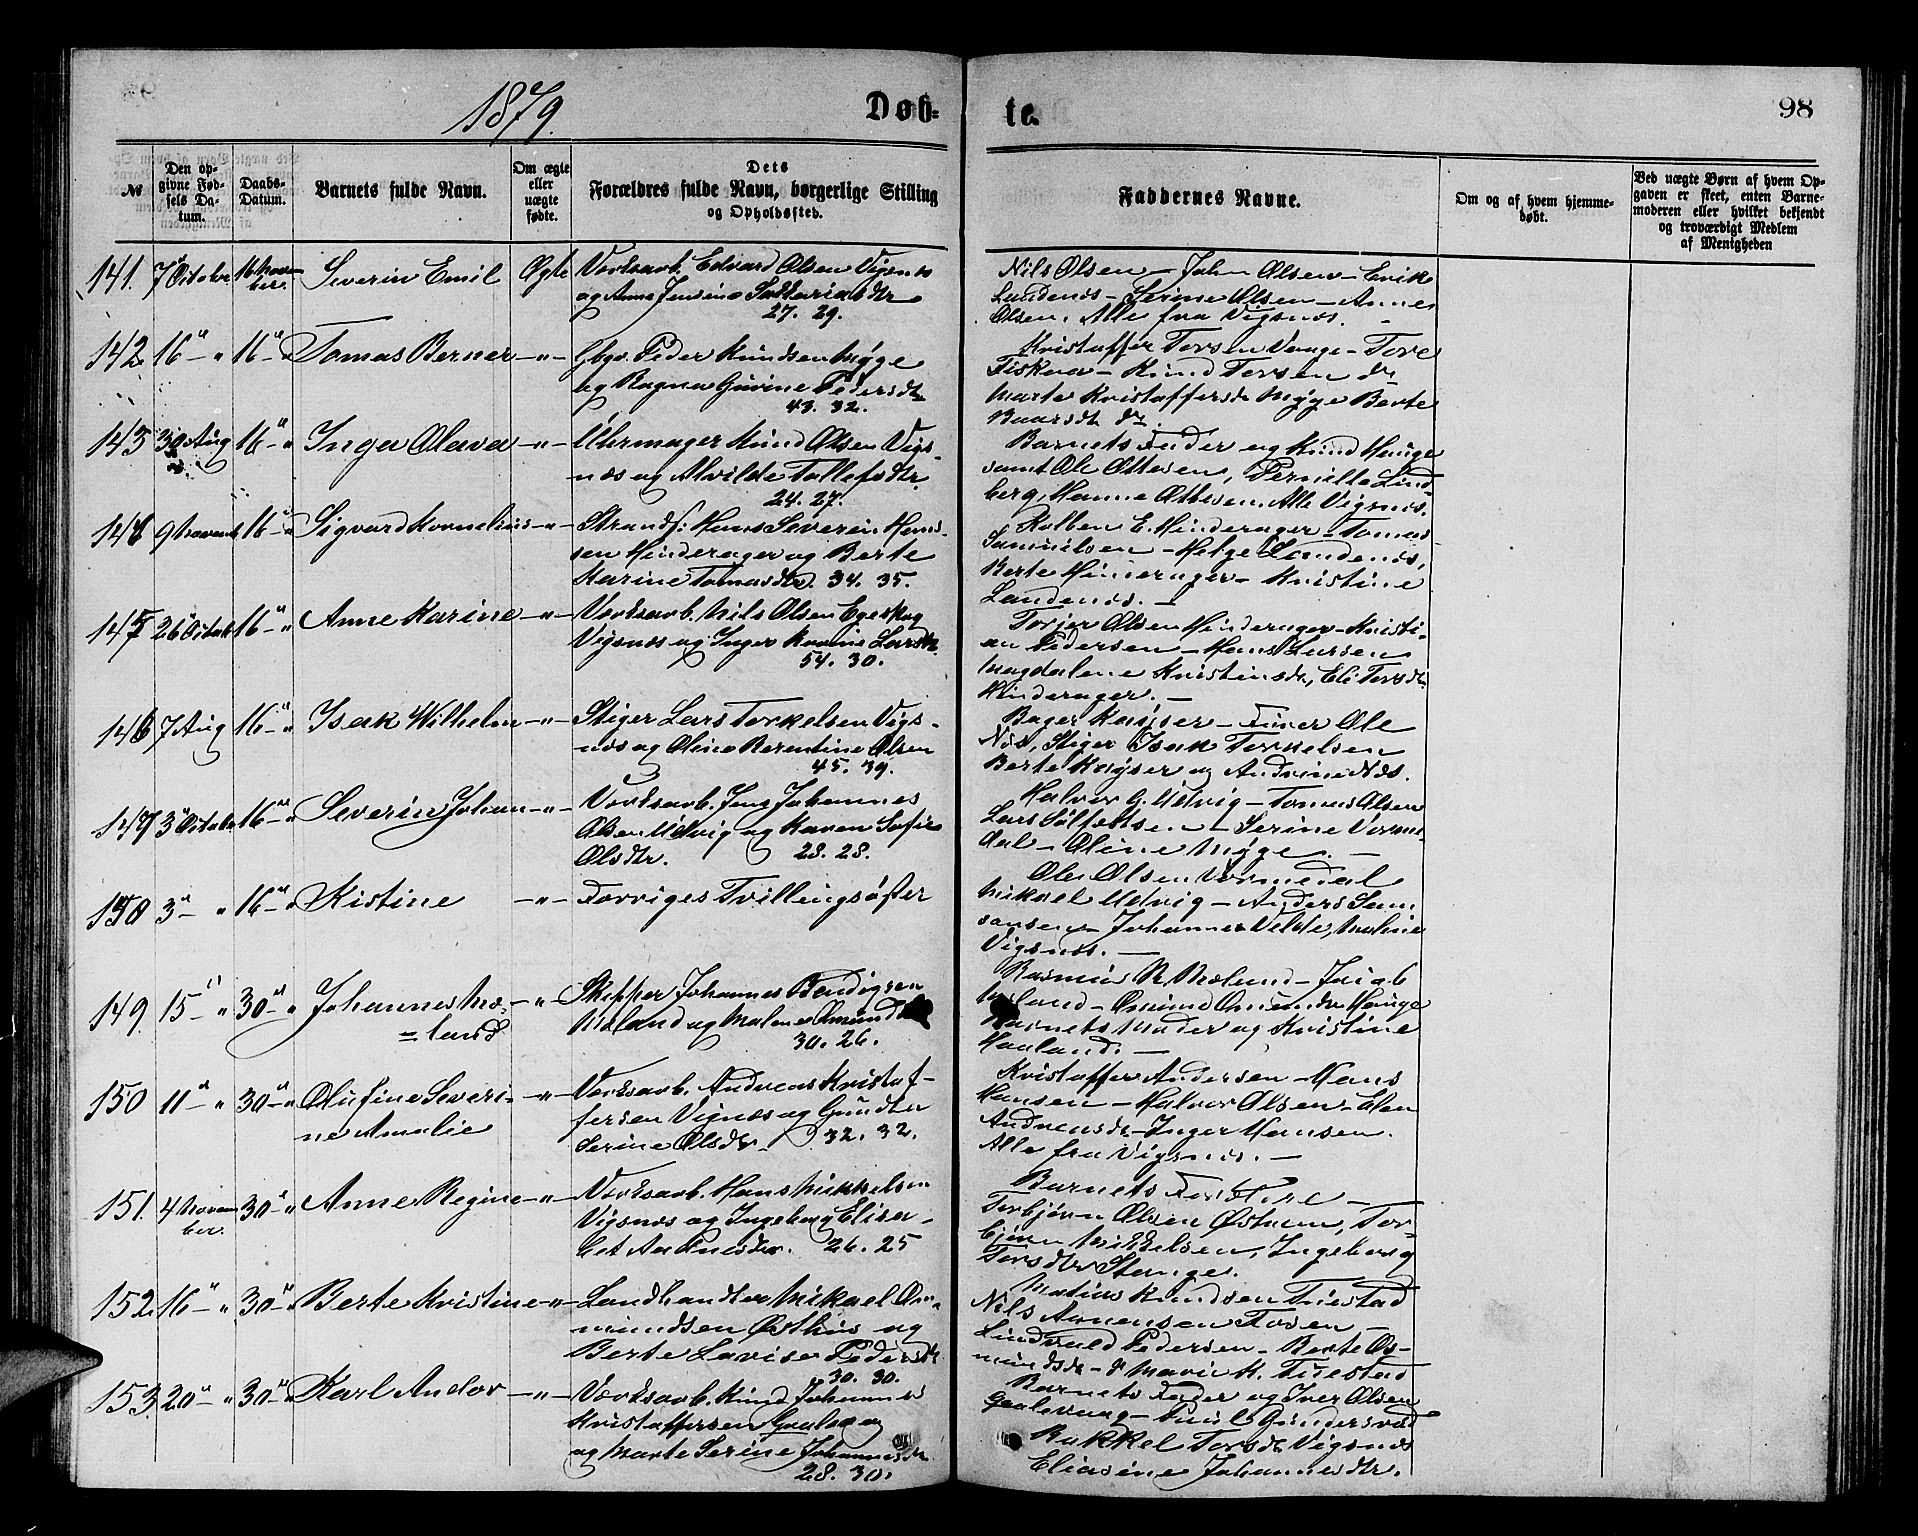 1879.
Døb=
te.
98
№
Den op-
givne Fød-
sels Da-
tum.
Daabs-
Datum.
Barnets fulde Navn.
Om ægte
eller
uægte
fødte.
Dets
Forældres fulde Navn, borgerlige Stilling
og Opholdssted.
Faddernes Navne.
Om og af hvem hjemme-
døbt.
Ved uægte Børn af hvem Op-
gaven er skeet, enten Barne-
moderen eller hvilket bekjendt
og troværdigt Medlem
af Menigheden
141. 7 October 16 Novem- Severin Emil Ægte Værksarb. Edvard Olsen Vigsnæs
ber. og Anne Jensine Sakkariasdtr
27. 29.
Nils Olsen – John Olsen – Enike
Landenæs – Serine Olsen – Anne
Olsen. Alle fra Vigsnæs.
142 16 – " 16 – " Tomas Berner – " – Gbgr. Peder Knudsen Myge
og Ragna Gurine Pedersdtr
43. 32.
Kristoffer Torsen Vaage – Tore
Fiskaa – Knud Torsen do
Marte Kristoffersdtr Myge Berte
Baarsdtr do.
143 30 Aug 16 – " Inga Olava – " – Uhrmager Knud Olsen Vigs-
næs og Alvilde Tollefsdtr.
24. 27.
Barnets Fader og Knud Hauge
samt Ole Ottesen, Pernille Lind-
berg, Hanne Ottesen. Alle Vigsnæs.
144 9 Novemb 16 – " Sigvard Kornelius – " – Strands. Hans Severin Han-
sen Hinderager og Berte
Karine Tomasdtr. 34. 35.
Kolben E. Hinderager – Tomas
Samuelsen – Helge Landenæs,
Berte Hinderager – Kristine
Landenæs. –
145 26 Octob 16 – " Anne Karine – " – Værksarb. Nils Olsen Egeskog
Vigsnæs og Inger Karine Larsdtr.
54. 30.
Torjer Olsen Hinderager – Kristi-
an Pedersen – Hans Larsen
Magdalene Kristensdtr, Eli Torsdtr
Hinderager. –
146 7 Aug 16 – " Isak Wilhelm – " – Stiger Lars Torkelsen Vigs-
næs og Oline Berentine Olsen
45. 39.
Bager Kayser – Ole
Næs, Stiger Isak Torkelsen
Berte Kayser og Andrine Næs.
147 3 October 16 – " Severin Johan – " – Værksarb. Jens Johannes
Olsen Udvig og Karen Sofie
Olsdtr. 28. 28.
Halvor G. Udvig – Tomas Olsen
Lars Salfestsen – Serine Vorme-
dal – Oline Myge. –
148 3 – " 16 – " Kistine – " – Forriges Tvillingsøster
Ole Olsen Vormedal
Mikael Udvig – Anders Sam-
sonsen – Johannes Velde, Malene
Vigsnæs. –
149. 15 – " 30 – " Johannes Mæ- – " – Skipper Johannes Bendigsen
=land Mæland og Malene Omundsdtr
30. 26.
Rasmus R. Mæland – Jacob
Mæland – Omund Omundsen Hauge
Barnets Moder og Kristine
Haaland. –
150 11 – " 30 – " Olufine Severi- – " – Værksarb. Andreas Kristof-
ne Amalie fersen Vignæs og Gundta
Serine Olsdtr. 32. 32.
Kristoffer Andersen – Hans
Hansen – Halvor Olsen – Elen
Andreasdtr – Inger Hansen.
Alle fra Vigsnæs. –
151. 4 Novem- 30 – " Anne Regine – " – Værksarb. Hans Mikkelsen
ber. Vigsnæs og Ingeborg Elisa-
bet Aadnesdtr. 26. 25
Barnets Forældre –
Torbjørn Olsen Østrem, Tor-
bjørn Mikkelsen, Ingeborg
Torsdtr Stange.
152. 16 – " 30 – " Berte Kristine – " – Landhandler Mikael Os-
mundsen Østhus og
Berte Lovise Pedersdtr
30. 30.
Matias Knudsen Tuestad
Nils Arnensen Fosen –
Lindvald Pedersen – Berte Os-
mundsdtr – & Marie K. Tuestad
153. 20 – " 30 – " Karl Andor – " – Værksarb. Knud Johannes
Kristoffersen Gaalvaag
og Marte Serine Johannesdtr
28. 30.
Barnets Fader og Iver Olsen
Gaalevaag – Gundersvad
Rakkel Torsdtr Vigsnæs
Eliasine Johannesdtr.